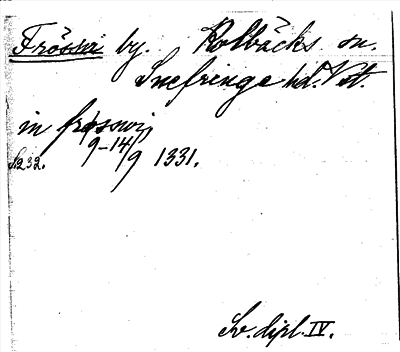 Frössvi by. Kolbäcks sn.
Snefringe hd. Vstm.
in frøsswi,
9-14/9 1331.
S. 232.
Sv. dipl. IV.